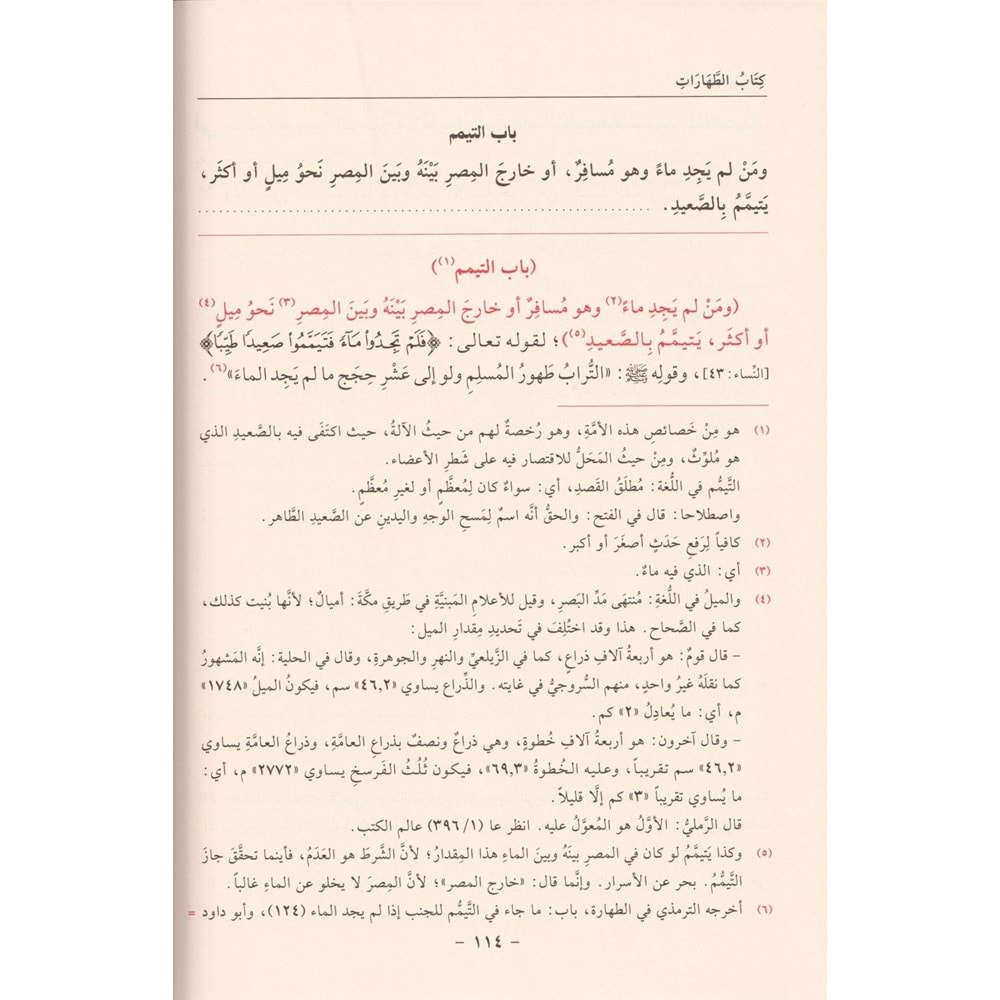 كِتَابُ الطَّهَارَاتِ
باب التيمم
ومَنْ لم يَجِدِ ماءً وهو مُسافِرٌ، أو خارجَ المِصرِ بَيْنَهُ وبَينَ المِصرِ نَحوُ مِيلٍ أو أكثَر،
يَتيمَّمُ بِالصَّعيدِ. . . . . . . . . . . . . . . . . . . . . . . . . . . . . . . . . . . . . . . . . . . . . . . . . . . . . . .
(باب التيمم(١))
(ومَنْ لم يَجِدِ ماءً(٢) وهو مُسافِرٌ أو خارجَ المِصرِ بَيْنَهُ وبَينَ المِصرِ(٣) نَحوُ مِيلٍ(٤)
أو أكثَر، يَتيمَّمُ بِالصَّعيدِ(٥))؛ لقوله تعالى: ﴿فَلَمْ تَجِدُواْ مَآءً فَتَيَمَّمُواْ صَعِيدًا طَيِّبًا﴾
[النِّساء: ٤٣]، وقولِه ﷺ: «التُّرابُ طَهورُ المُسلِمِ ولو إلى عَشْرِ حِجَجٍ ما لم يَجِد الماءَ»(٦).
(١) هو مِنْ خَصائصِ هذه الأمَّةِ، وهو رُخصةٌ لهم من حيثُ الآلةُ، حيث اكتَفَى فيه بالصَّعيدِ الذي
هو مُلوِّثٌ، ومِنْ حيثُ المَحَلُّ للاقتصار فيه على شَطرِ الأعضاء.
التَّيمُّم في اللُّغة: مُطلَقُ القَصدِ، أي: سواءٌ كان لِمُعظَّمٍ أو لغيرِ مُعظَّمٍ.
واصطلاحا: قال في الفتح: والحقُّ أنَّه اسمٌ لِمَسحِ الوجهِ واليدينِ عن الصَّعيدِ الطَّاهر.
(٢) كافياً لِرَفعِ حَدَثٍ أصغَرَ أو أكبر.
(٣) أي: الذي فيه ماءٌ.
(٤) والميلُ في اللُّغةِ: مُنتهَى مَدِّ البَصرِ، وقيل للأعلامِ المَبنيَّةِ في طَريقِ مكَّةَ: أميالٌ؛ لأنَّها بُنيت كذلك،
كما في الصَّحاح. هذا وقد اختُلِفَ في تَحديدِ مِقدارِ الميل:
– قال قومٌ: هو أربعةُ آلافِ ذراعٍ، كما في الزَّيلعيِّ والنهرِ والجوهرةِ، وقال في الحلية: إنَّه المَشهورُ
كما نقلَهُ غيرُ واحدٍ، منهم السُّروجيُّ في غايته. والذِّراع يساوي «٤٦,٢» سم، فيكونُ الميلُ «١٧٤٨»
م، أي: ما يُعادِلُ «٢» كم.
– وقال آخرون: هو أربعةُ آلافِ خُطوةٍ، وهي ذراعٌ ونصفٌ بذراعِ العامَّةِ، وذراعُ العامَّةِ يساوي
«٤٦,٢» سم تقريباً، وعليه الخُطوةُ «٦٩,٣»، فيكون ثُلُثُ الفَرسخِ يساوي «٢٧٧٢» م، أي:
ما يُساوي تقريباً «٣» كم إلَّا قليلاً.
قال الرَّمليُّ: الأوَّلُ هو المُعوَّلُ عليه. انظر عا (١/ ٣٩٦) عالم الكتب.
(٥) وكذا يَتيمَّمُ لو كان في المصرِ بينَهُ وبينَ الماءِ هذا المِقدارُ؛ لأنَّ الشَّرطَ هو العَدَمُ، فأينما تحقَّقَ جازَ
التَّيمُّمُ. بحر عن الأسرار. وإنَّما قال: «خارج المصر»؛ لأنَّ المِصرَ لا يخلو عن الماءِ غالباً.
(٦) أخرجه الترمذي في الطهارة، باب: ما جاء في التَّيمُّم للجنب إذا لم يجد الماء (١٢٤)، وأبو داود =
– ١١٤ –